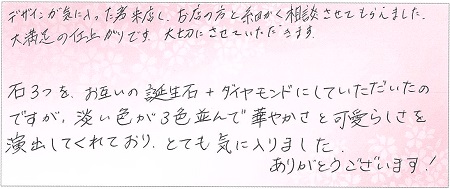 デザインが気に入った為来店し、お店の方と細かく相談させてもらえました。
大満足の仕上がりです。大切にさせていただきます。
石3つを、お互いの誕生石+ダイヤモンドにしていただいたの
ですが、淡い色が3色並んで華やかさと可愛らしさを
演出してくれており、とても気に入りました。
ありがとうございます!